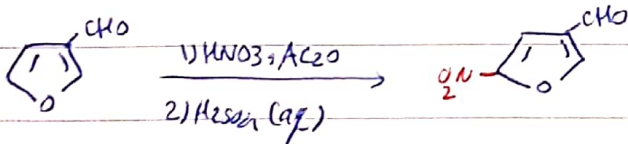 CHO
O
1) HNO3, AC2O
2) H2SO4 (aq)
CHO
O2N
O